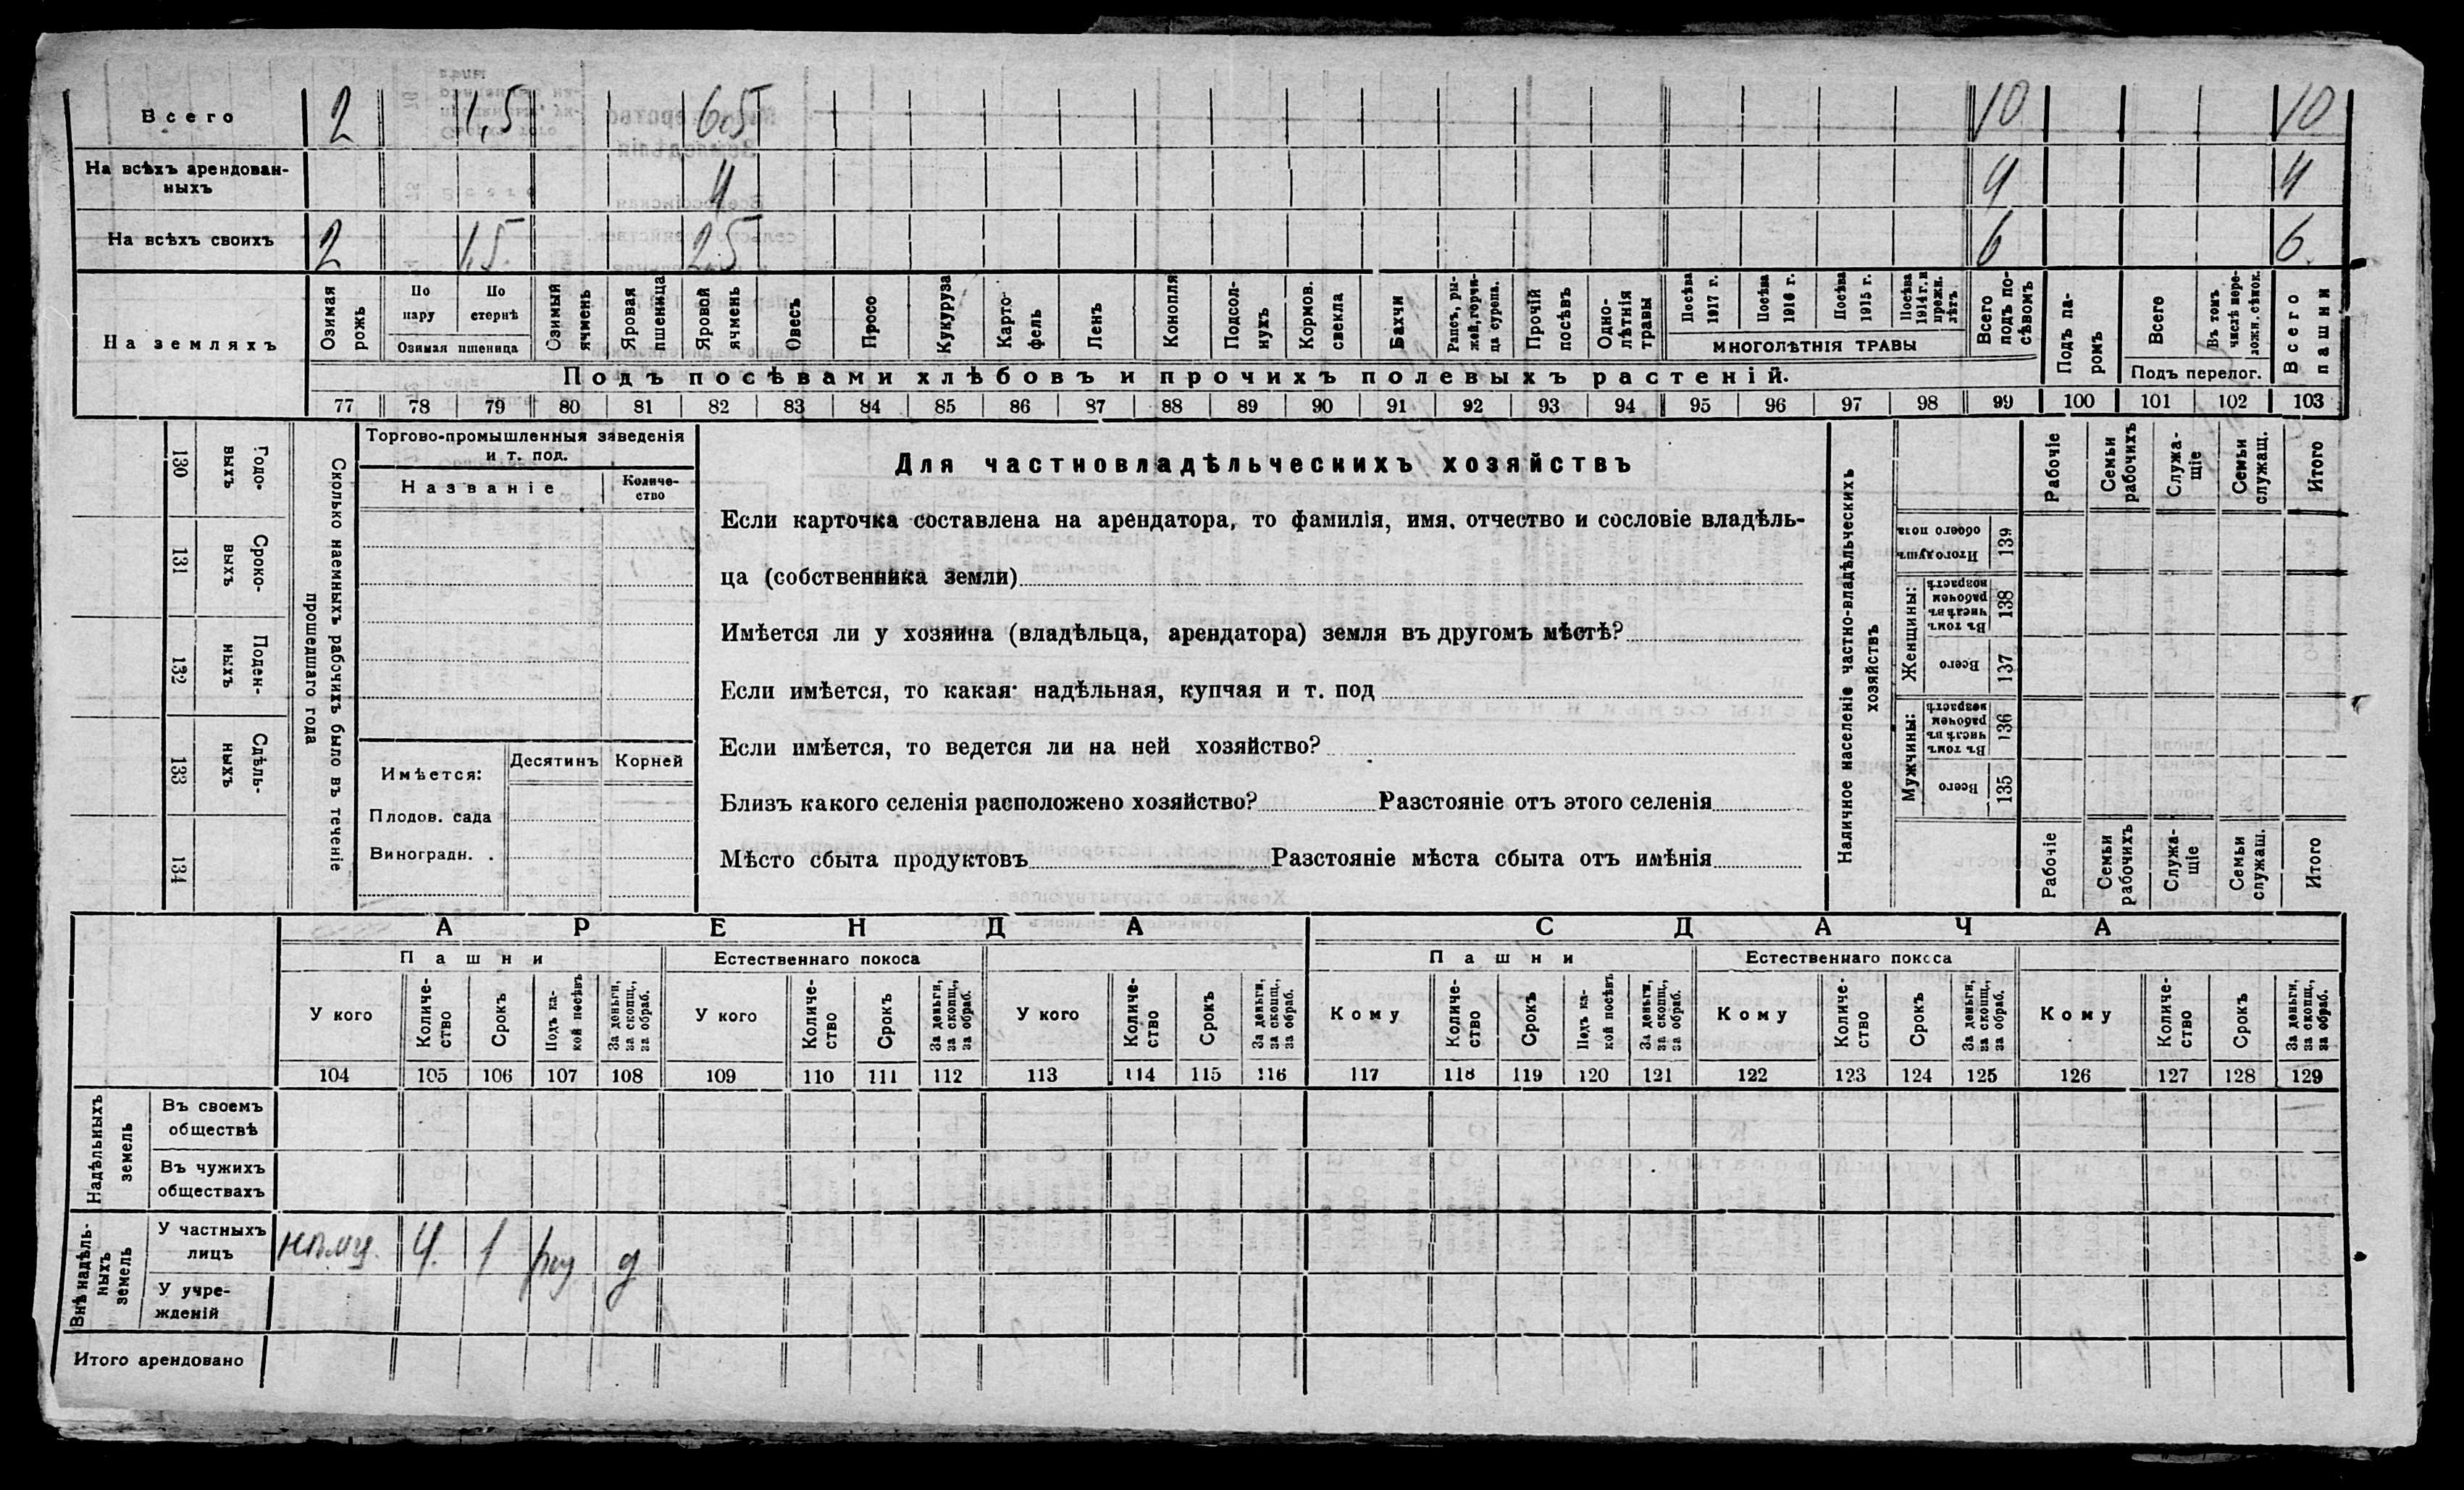 Всего 2 1,5 6,5 10 10
На всѣхъ арендован-
ныхъ 4 4 4
На всѣхъ своихъ 2 1,5 2,5 6 6
На земляхъ
Озимая рожь
По пару
По стернѣ
Озимая пшеница
Озимый ячмень
Яровая пшеница
Яровой ячмень
Овесъ
Просо
Кукуруза
Карто-
фель
Ленъ
Конопля
Подсол-
нухъ
Кормов. свекла
Бахчи
Рапсъ, ры-
жей, горчи-
ца сурепа.
Прочій посѣвъ
Одно-
лѣтнія травы
Посѣва 1917 г.
Посѣва 1916 г.
Посѣва 1915 г.
Посѣва 1914 г. и прежн. лѣтъ
МНОГОЛѢТНІЯ ТРАВЫ
Всего подъ по-
сѣвомъ
Подъ па-
ромъ
Всего
Въ томъ числѣ пере-
ложн. сѣнок.
Подъ перелог.
Всего пашни
Подъ посѣвами хлѣбовъ и прочихъ полевыхъ растеній.
77 78 79 80 81 82 83 84 85 86 87 88 89 90 91 92 93 94 95 96 97 98 99 100 101 102 103
130 Годо-
выхъ
131 Сроко-
выхъ
132 Поден-
ныхъ
133 Сдѣль-
ныхъ
134
Сколько наемныхъ рабочихъ было въ теченіе
прошедшаго года
Торгово-промышленныя заведенія
и т. под.
Названіе
Количе-
ство
Имѣется:
Десятинъ Корней
Плодов. сада
Виноградн. .
Для частновладѣльческихъ хозяйствъ
Если карточка составлена на арендатора, то фамилія, имя, отчество и сословіе владѣль-
ца (собственника земли)
Имѣется ли у хозяина (владѣльца, арендатора) земля въ другомъ мѣстѣ?
Если имѣется, то какая: надѣльная, купчая и т. под
Если имѣется, то ведется ли на ней хозяйство?
Близъ какого селенія расположено хозяйство? Разстояніе отъ этого селенія
Мѣсто сбыта продуктовъ Разстояніе мѣста сбыта отъ имѣнія
Наличное населеніе частно-владѣльческихъ
хозяйствъ
Рабочіе
Семьи рабочихъ
Служа-
щіе
Семьи служащ.
Итого
Итого душъ обоего пола 139
Женщины:
Въ томъ числѣ въ рабочем возрастѣ 138
Всего 137
Мужчины:
Въ томъ числѣ въ рабочем возрастѣ 136
Всего 135
Рабочіе
Семьи рабочихъ
Служа-
щіе
Семьи служащ.
Итого
АРЕНДА СДАЧА
Пашни Естественнаго покоса Пашни Естественнаго покоса
У кого
Количе-
ство
Срокъ
Подъ ка-
кой посѣвъ
За деньги, за скопщ., за обраб.
У кого
Количе-
ство
Срокъ
За деньги, за скопщ., за обраб.
У кого
Количе-
ство
Срокъ
За деньги, за скопщ., за обраб.
Кому
Количе-
ство
Срокъ
Подъ ка-
кой посѣвъ
За деньги, за скопщ., за обраб.
Кому
Количе-
ство
Срокъ
За деньги, за скопщ., за обраб.
Кому
Количе-
ство
Срокъ
За деньги, за скопщ., за обраб.
104 105 106 107 108 109 110 111 112 113 114 115 116 117 118 119 120 121 122 123 124 125 126 127 128 129
Надѣльныхъ земель
Въ своемъ
обществѣ
Въ чужихъ
обществахъ
Внѣ надѣль-
ныхъ земель
У частныхъ
лицъ 4. 1 д
У учре-
жденій
Итого арендовано